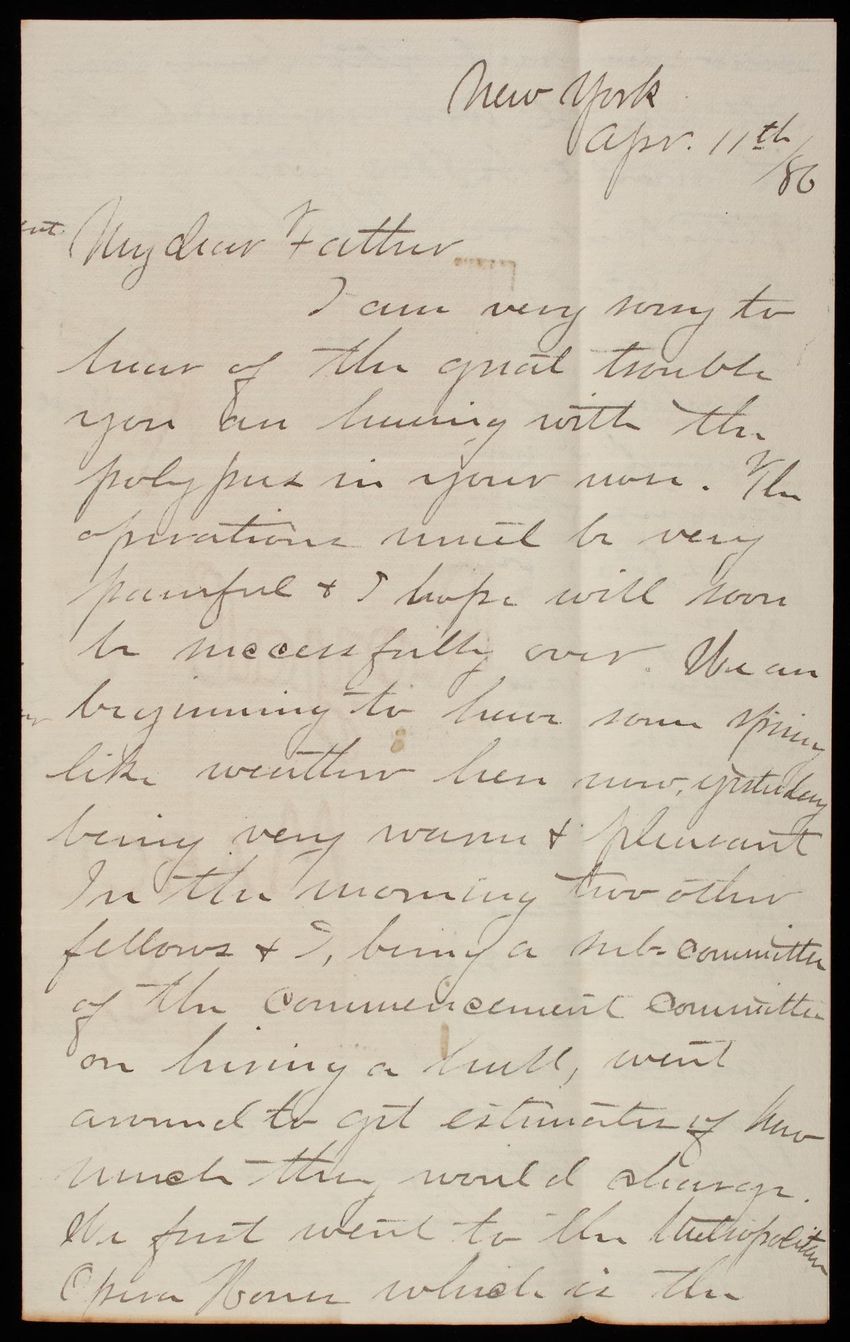 New York
Apr. 11th/86
My dear Father
I am very sorry to
hear of the great trouble
you are having with the
polypus in your nose. The
operations must be very
painful & I hope will soon
be successfully over. We are
beginning to have some spring
like weather here now, yesterday
being very warm & pleasant
In the morning two other
fellows & I, being a sub-committee
of the Commencement Committee
on hiring a hall, went
around to get estimates of how
much they would charge.
We first went to the Metropolitan
Opera House which is the